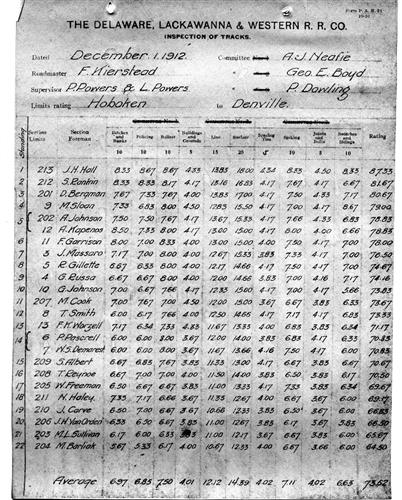 THE DELAWARE, LACKAWANNA & WESTERN R. R. CO.
INSPECTION OF TRACKS.
Dated December 1. 1912. Committee A. J. Neafie
Roadmaster F. Kierstead " Geo. E. Boyd
Supervisor P. Powers & L. Powers " P. Dowling
Limits rating Hoboken to Denville.
Standing Section Limits Section Foreman Ditches and Banks Policing Ballast Buildings and Grounds Line Surface Spiking Joints and Bolts Switches and Sidings Rating
1 213 J. H. Hall 8.33 8.67 8.67 4.33 18.00 8.33 4.50 8.33 87.33
2 212 S. Rankin 8.33 8.33 8.17 4.17 4.17 7.67 4.17 6.67 81.67
3 201 D. Bergman 7.67 7.33 7.67 4.00 17.00 4.17 7.50 4.33 7.17 80.67
4 9 M. Sloan 7.33 6.83 8.00 4.50 4.17 7.00 4.17 8.67 79.00
5 202 A. Johnson 7.50 7.50 7.67 4.17 13.67 15.33 4.17 7.66 4.33 6.83 78.83
12 A. Kapenos 8.50 7.33 8.00 4.17 13.00 15.00 4.17 8.00 4.00 6.66 78.83
6 11 F. Garrison 8.00 7.00 8.33 4.00 13.00 15.00 4.00 7.50 4.17 7.00 78.00
7 3 J. Massaro 7.17 7.00 8.00 4.00 12.67 15.33 3.83 7.33 4.17 7.00
8 5 R. Gillette 6.67 6.33 8.00 4.00 12.17 14.66 4.17 7.50 4.17 7.00 74.67
9 4 G. Russa 6.67 6.67 8.00 4.00 12.00 14.66 7.00 4.16 74.16
10 G. Johnson 7.00 6.67 7.66 4.17 12.33 15.00 4.17 7.00 4.17 5.66 73.83
11 207 M. Cook 7.00 7.67 7.00 4.50 12.00 15.00 3.67 6.67 3.83 6.33 73.67
12 8 T. Smith 6.00 6.17 7.66 4.00 12.50 14.66 4.17 7.17 4.17 6.83 73.33
13 13 F. H. Worzell 7.17 6.34 7.33 4.33 11.67 13.33 4.00 6.83 3.83 6.34 71.17
14 6 P. Pascrell 6.00 6.00 8.00 3.67 12.00 14.00 3.83 6.83 4.17 6.33 70.83
7 W. S. Demarest 6.00 6.00 8.00 3.67 11.67 13.66 4.16 7.50 4.17 6.00 70.83
15 209 S. Albert 6.67 6.83 7.67 3.83 11.33 13.00 4.17 6.67 3.83 6.67 70.67
16 208 T. Reynoe 6.67 7.00 7.00 4.00 11.50 14.00 3.83 6.50 3.83 6.17 70.50
17 205 W. Freeman 6.50 6.67 6.67 3.83 11.00 13.33 4.17 7.33 3.83 6.34 69.67
18 211 N. Haley 7.33 7.17 6.66 3.67 11.33 12.67 4.00 6.67 3.67 6.00 69.17
19 210 J. Carve 6.50 7.00 6.67 3.67 10.66 12.33 4.00 6.50 3.67 5.83 66.83
20 206 J. H. Van Orden 6.33 6.50 6.67 3.83 11.00 12.67 3.83 6.17 3.67 5.83 66.50
21 203 M. L. Sullivan 6.17 6.00 6.33 3.83 11.00 12.17 3.67 6.67 3.83 6.00 65.67
22 204 M. Barliak 5.67 5.33 6.17 4.00 10.67 12.33 4.00 6.67 3.66 6.00 64.50
Average 6.97 6.83 7.50 4.01 12.12 14.39 4.02 7.11 4.02 6.63 73.62